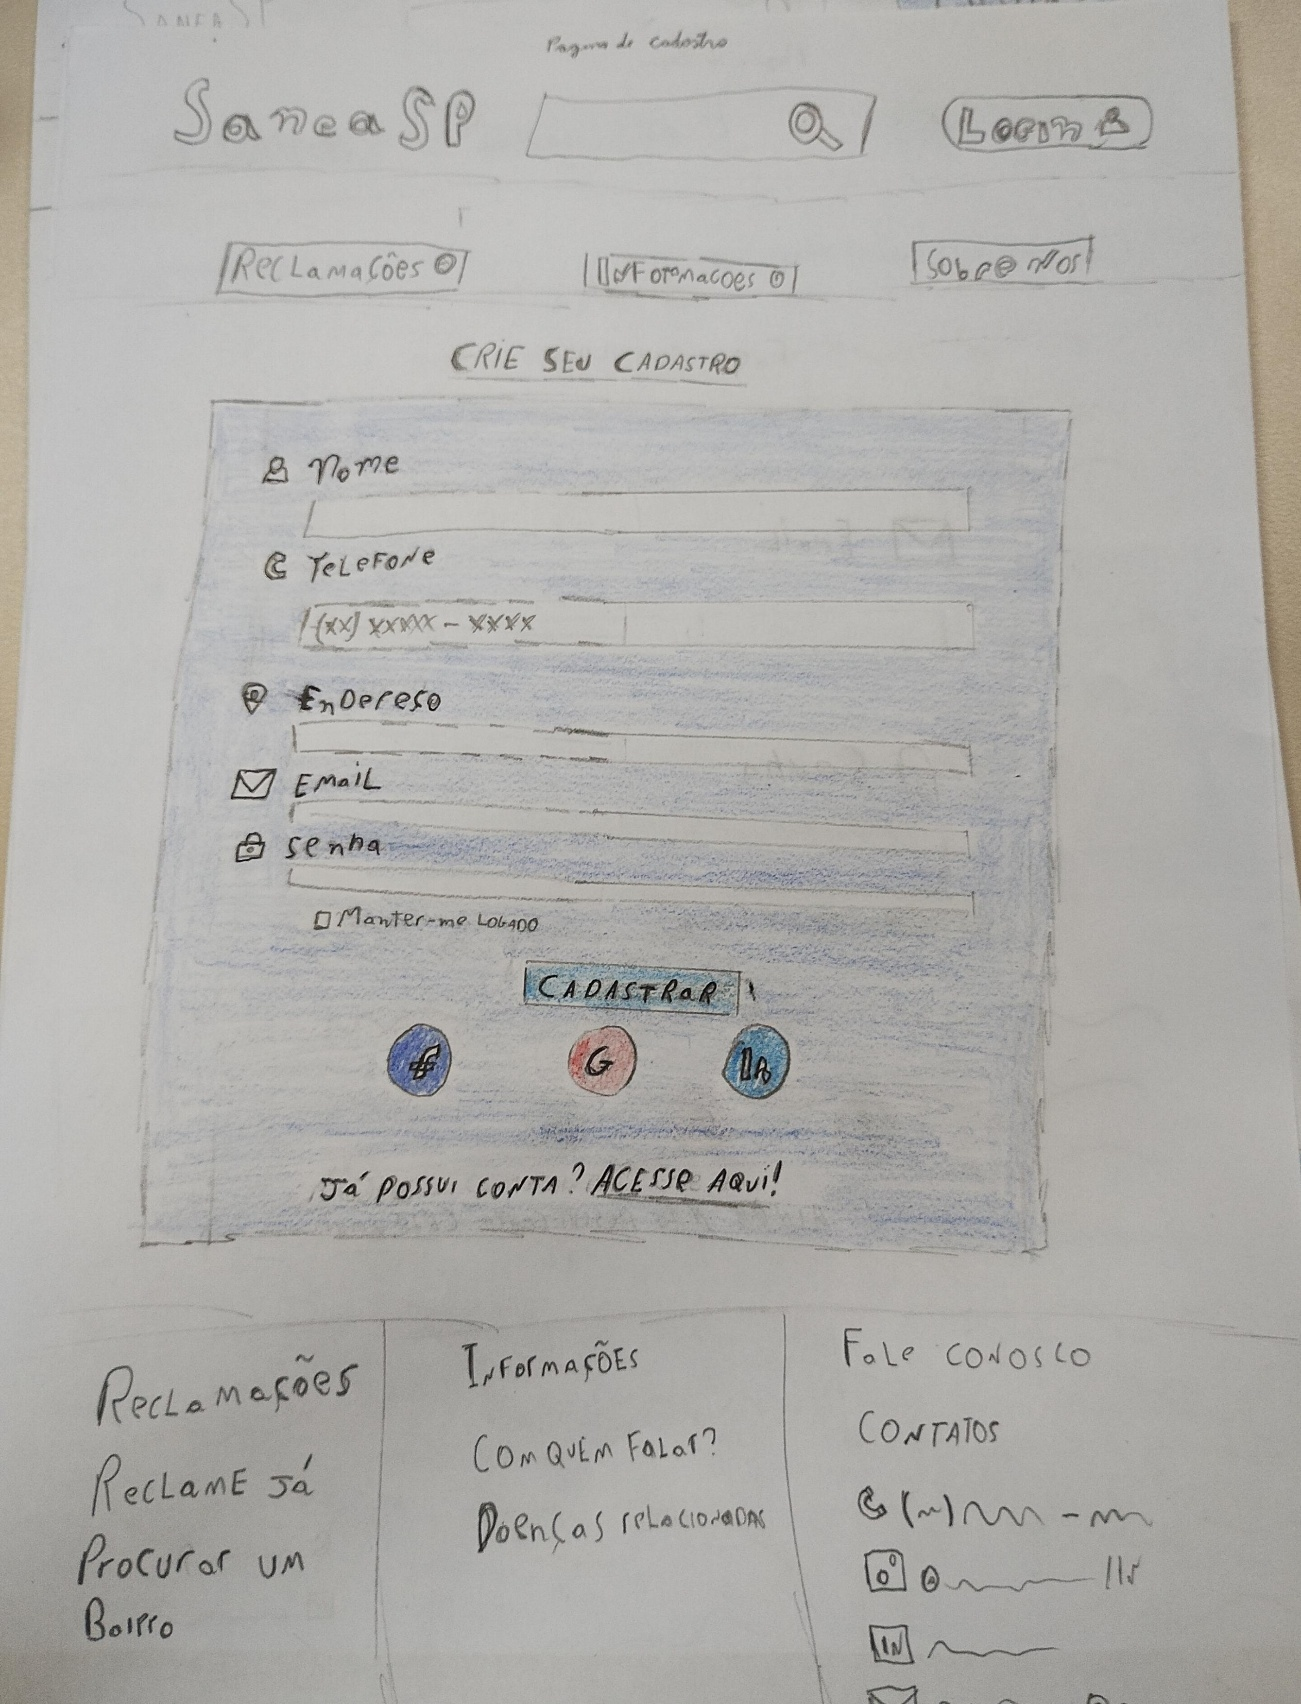 SaneaSP
Pagina de cadastro
SaneaSP
Login
Reclamações
Informacoes
Sobre Nos
CRIE SEU CADASTRO
Nome
Telefone
(xx) xxxxx - xxxx
Endereço
Email
Senha
Manter-me LOGADO
CADASTRAR
f
G
In
Já POSSUI CONTA? ACESSE AQUI!
Reclamações
Reclame Já
Procurar um
Bairro
Informações
Com quem falar?
Doenças relacionadas
Fale conosco
CONTATOS
IN